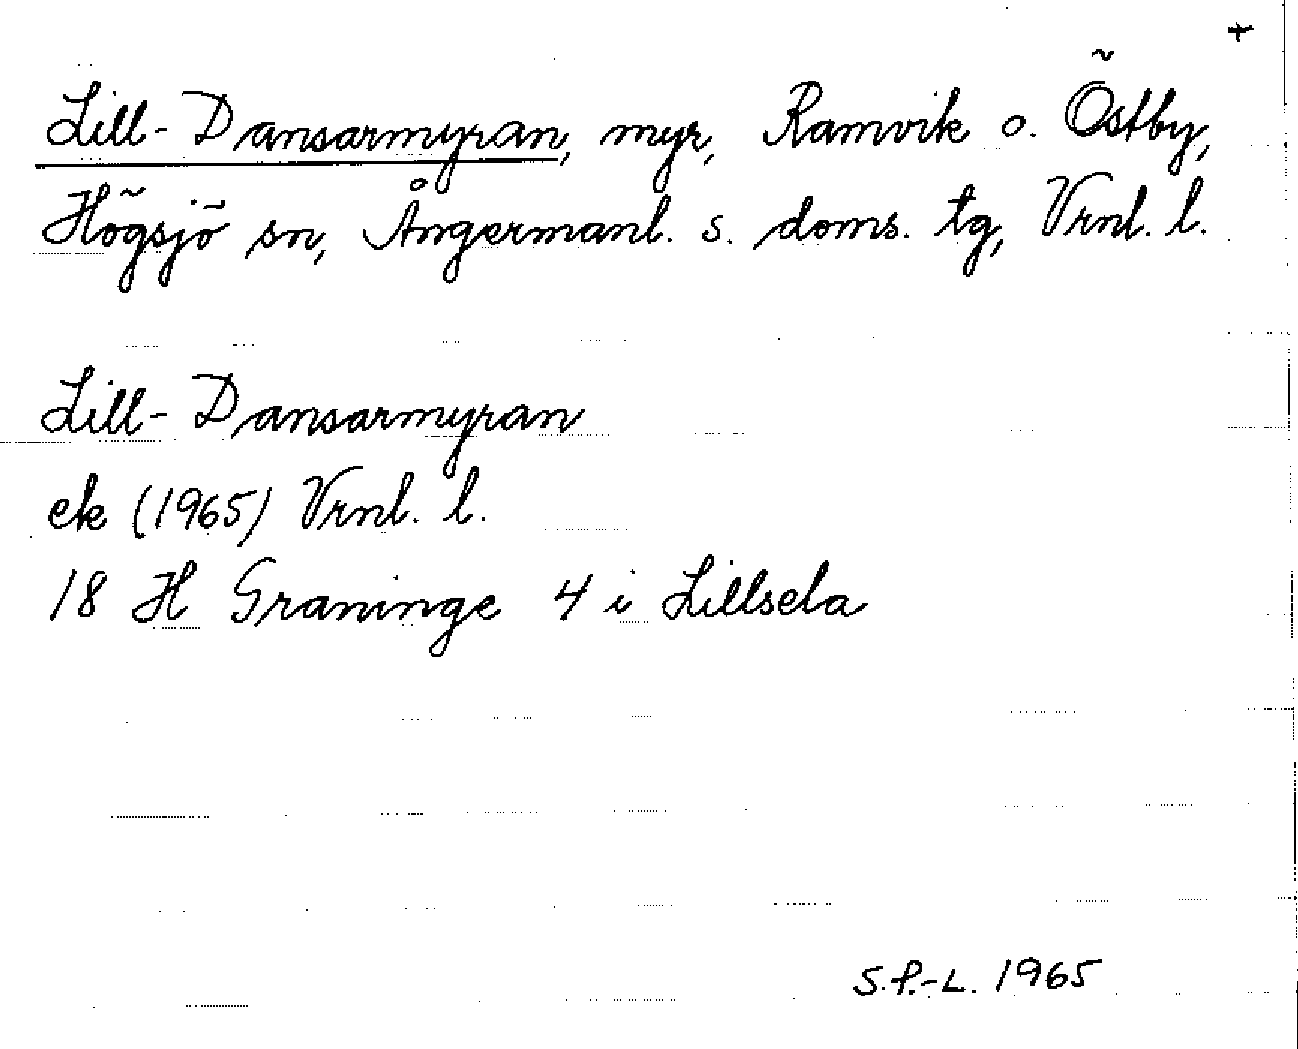 +
Lill-Dansarmyran, myr, Ramvik o. Östby,
Högsjö sn, Ångermanl. s. doms. tg, Vrnl. l.
Lill-Dansarmyran
ek (1965) Vrnl. l.
18 H Graninge 4 i Lillsela
S.P.-L. 1965